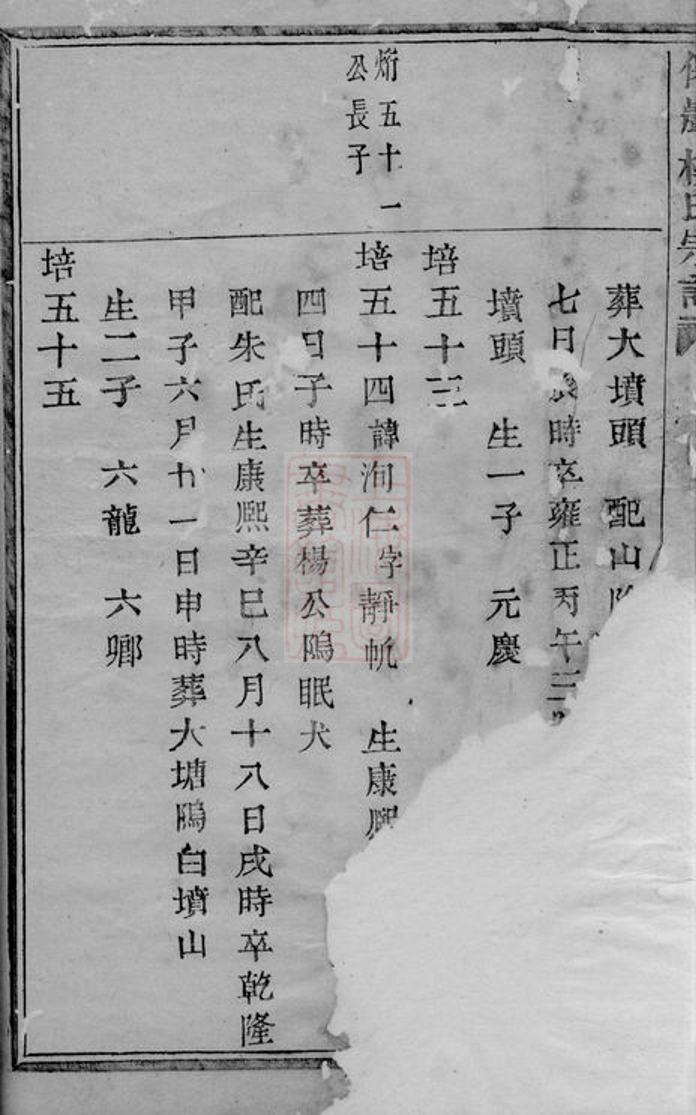 葬大墳頭　配山
七日辰時卒雍正丙午三
墳頭　生一子　元慶
培五十三
炘五十一
公長子
培五十四諱洵仁字靜帆　生康熙
四日子時卒葬楊公隖眠犬
配朱氏生康熙辛巳八月十八日戌時卒乾隆
甲子六月廿一日申時葬大塘隖白墳山
生二子　六龍　六卿
培五十五